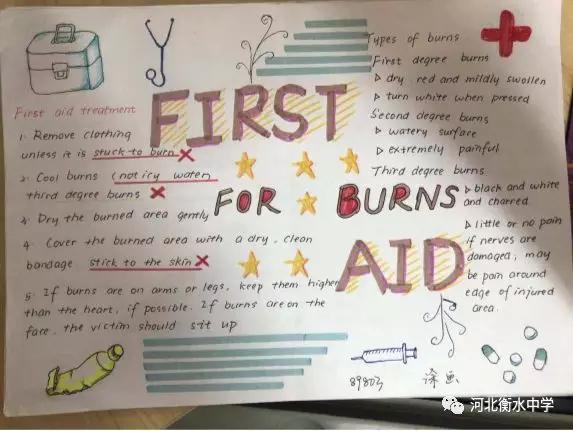 First aid treatment
1. Remove clothing
unless it is stuck to burn
2. Cool burns (not icy water)
third degree burns
3. Dry the burned area gently
4. Cover the burned area with a dry, clean
bandage stick to the skin
5. If burns are on arms or legs, keep them higher
than the heart, if possible. If burns are on the
face, the victim should sit up
FIRST
FOR BURNS
AID
Types of burns
First degree burns
dry, red and mildly swollen
turn white when pressed
Second degree burns
watery surface
extremely painful
Third degree burns
black and white
and charred
little or no pain
if nerves are
damaged, may
be pain around
edge of injured
area.
涂画
河北衡水中学